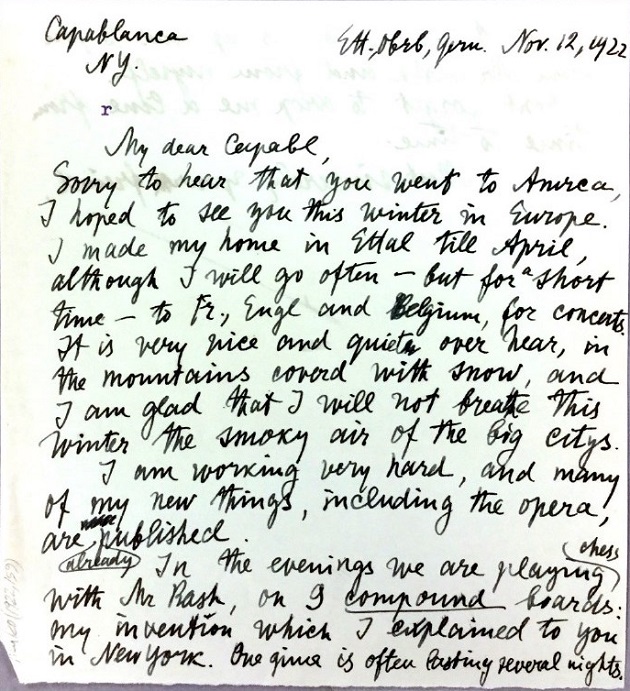 Capablanca Ett. Obrb, Germ. Nov. 12, 1922
NY.
r
My dear Capabl,
Sorry to hear that you went to Amrca,
I hoped to see you this winter in Europe.
I made my home in Ettal till April,
although I will go often – but for a short
time – to Fr., Engl and Belgium, for concerts.
It is very nice and quiet over hear, in
the mountains coverd with snow, and
I am glad that I will not breathe this
winter the smoky air of the big citys.
I am working very hard, and many
of my new things, including the opera,
are already published.
In the evenings we are playing chess
with Mr Bash, on 9 compound boards:
my invention which I explained to you
in New York. One game is often lasting several nights.